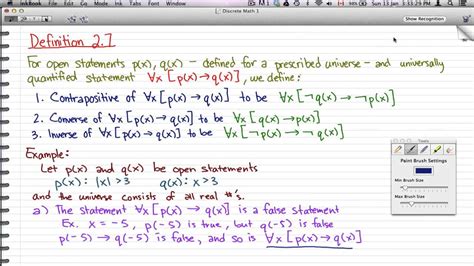 inkBook File Edit View Insert Format Window Help
Sun 13 Jan 3:33:29 PM
Discrete Math 1
Show Recognition
Definition 2.7
For open statements p(x), q(x) - defined for a prescribed universe - and universally
quantified statement ∀x [p(x) → q(x)], we define:
1. Contrapositive of ∀x [p(x) → q(x)] to be ∀x [¬q(x) → ¬p(x)]
2. Converse of ∀x [p(x) → q(x)] to be ∀x [q(x) → p(x)]
3. Inverse of ∀x [p(x) → q(x)] to be ∀x [¬p(x) → ¬q(x)]
Example:
Let p(x) and q(x) be open statements
p(x): |x| > 3 q(x): x > 3
and the universe consists of all real #'s.
a) The statement ∀x [p(x) → q(x)] is a false statement
Ex. x = -5, p(-5) is true, but q(-5) is false
p(-5) → q(-5) is false, and so is ∀x [p(x) → q(x)]
Tools
Paint Brush Settings
Min Brush Size
Max Brush Size